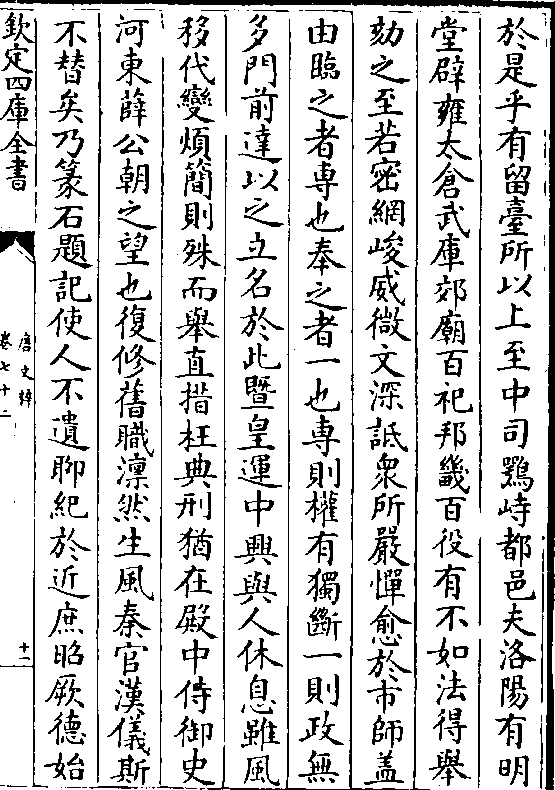 於是乎有留臺所以上至中司鶚峙都邑夫洛陽有明
堂辟雍太倉武庫郊廟百祀邦畿百役有不如法得舉
劾之至若密網峻威微文深詆衆所嚴憚愈於市師蓋
由臨之者専也奉之者一也專則權有獨斷一則政無
多門前達以之立名於此暨皇運中興與人休息雖風
移代變煩簡則殊而舉直措枉典刑猶在殿中侍御史
河東薛公朝之望也復修舊職凛然生風秦官漢儀斯
不替矣乃篆石題記使人不遺聊紀於近庶昭厥德始
欽定四庫全書
唐文粹
卷七十二
十一